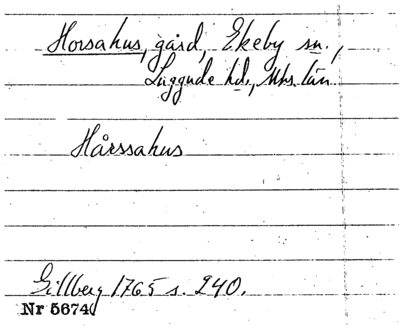 Horsahus, gård, Ekeby sn.,
Luggude hd., Mhs. län
Hårssahus
Gillberg 1765 s. 240.
Nr 5674